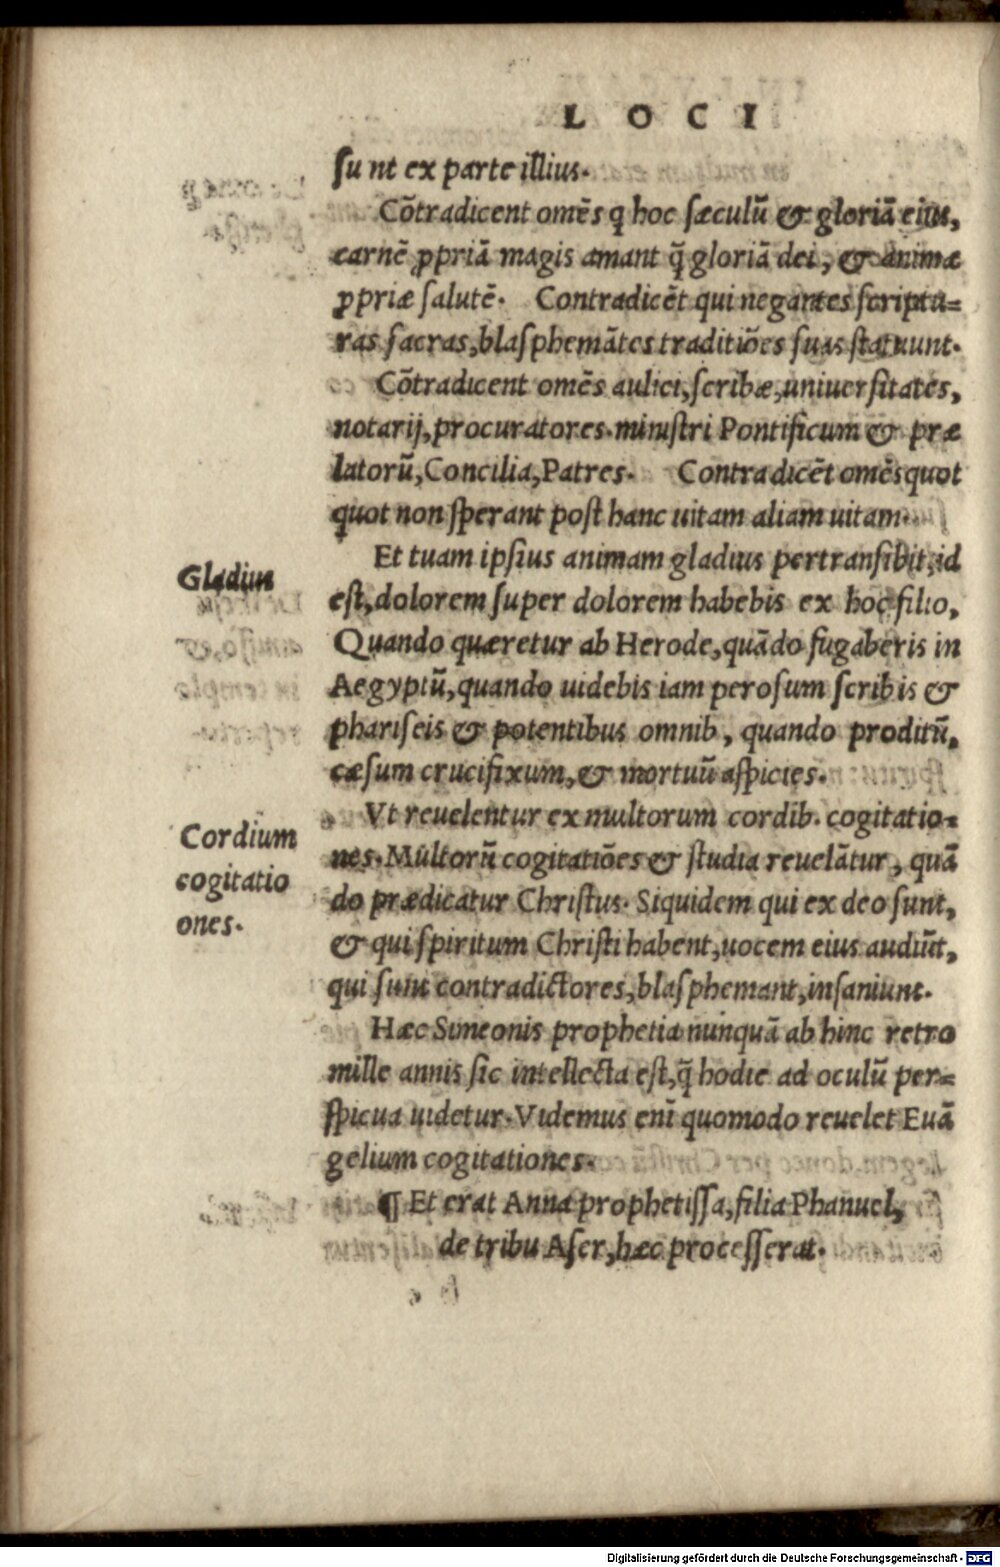 LOCI
su nt ex parte illius.
Cōtradicent omēs q hoc sæculū & gloriā eius,
carnē ꝓpriā magis amant q̃ gloriā dei, & animæ
ꝓpriæ salutē. Contradicēt qui negantes scriptu=
ras sacras, blasphemātes traditiōes suas statuunt.
Cōtradicent omēs aulici, scribæ, uniuersitates,
notarij, procuratores. ministri Pontificum & præ
latorū, Concilia, Patres. Contradicēt omēs quot
quot non sperant post hanc uitam aliam uitam.
Gladius
Et tuam ipsius animam gladius pertransibit, id
est, dolorem super dolorem habebis ex hoc filio,
Quando quæretur ab Herode, quādo fugaberis in
Aegyptū, quando uidebis iam perosum scribis &
phariseis & potentibus omnib, quando proditū,
cæsum crucifixum, & mortuū aspicies.
Cordium
cogitatio
ones.
Vt reuelentur ex multorum cordib. cogitatio=
nes. Multorū cogitatiōes & studia reuelātur, quā
do prædicatur Christus. Siquidem qui ex deo sunt,
& qui spiritum Christi habent, uocem eius audiūt,
qui sunt contradictores, blasphemant, insaniunt.
Hæc Simeonis prophetia nunquā ab hinc retro
mille annis sic intellecta est, q̃ hodie ad oculū per=
spicua uidetur. Videmus enī quomodo reuelet Euā
gelium cogitationes.
¶ Et erat Anna prophetissa, filia Phanuel,
de tribu Aser, hæc processerat.
Digitalisierung gefördert durch die Deutsche Forschungsgemeinschaft - DFG